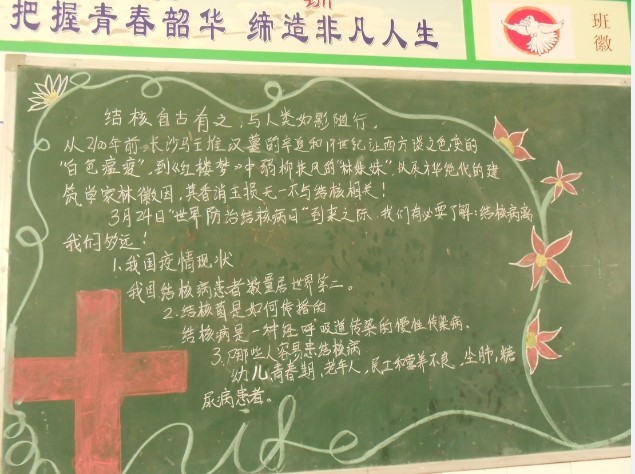 训
把握青春韶华 缔造非凡人生
班
徽
结核自古有之,与人类如影随行,
从2100年前长沙马王堆汉墓的辛追和19世纪让西方谈之色变的
"白色瘟疫",到《红楼梦》中弱柳扶风的"林妹妹",以及才华绝代的建
筑学家林徽因,其香消玉损无一不与结核相关!
3月24日"世界防治结核病日"到来之际,我们有必要了解:结核病离
我们多远!
1.我国疫情现状
我国结核病患者数量居世界第二。
2.结核菌是如何传播的
结核病是一种经呼吸道传染的慢性传染病.
3.哪些人容易患结核病
幼儿,青春期、老年人,民工和营养不良,尘肺,糖
尿病患者。